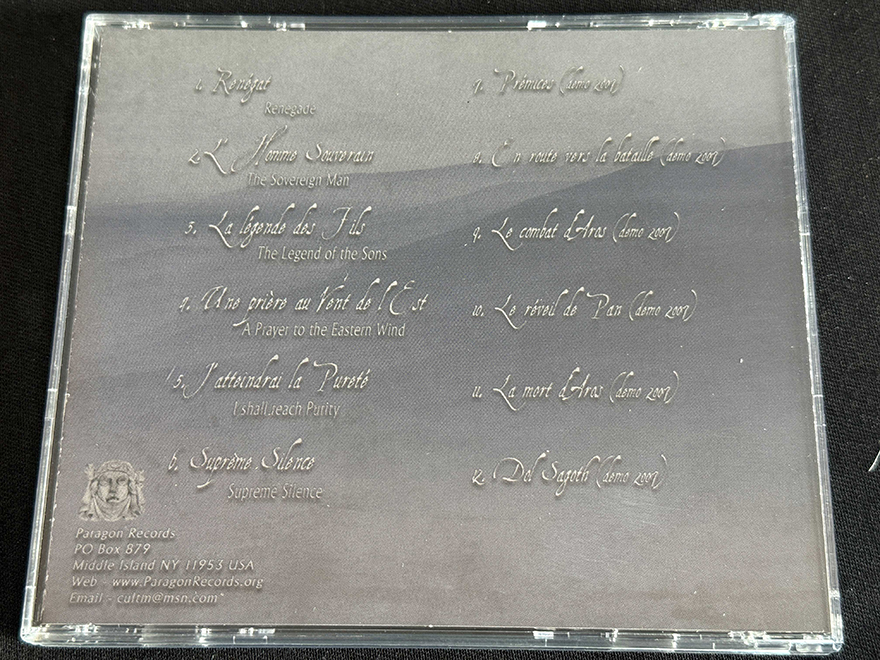 1. Renégat
Renegade
2. L'Homme Souverain
The Sovereign Man
3. La légende des Fils
The Legend of the Sons
4. Une prière au Vent de l'Est
A Prayer to the Eastern Wind
5. J'atteindrai la Pureté
I shall reach Purity
6. Suprême Silence
Supreme Silence
7. Prémices (demo 2009)
8. En route vers la bataille (demo 2009)
9. Le combat d'Aros (demo 2009)
10. Le réveil de Pan (demo 2009)
11. La mort d'Aros (demo 2009)
12. Dol Sagoth (demo 2009)
Paragon Records
PO Box 879
Middle Island NY 11953 USA
Web - www.ParagonRecords.org
Email - cultm@msn.com